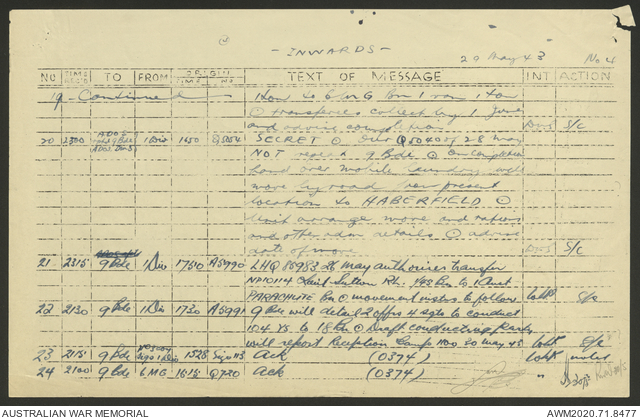 - INWARDS -
29 May 43 No 4
NO TIME REC'D TO FROM ORIGIN TIME NO TEXT OF MESSAGE INT ACTION
19 - Continued - 1 Ton to 6 MG Bn 1 ton
transferees collect by 1 June
and advise completion S/c
20 2300 1 Div 1650 Q5054 SECRET Our Q5040 of 28 May
NOT 9 Bde On completion
hand over mobile laundry will
move by road from present
location to HABERFIELD
Unit arrange move and rations
and other adm details advise
date of move S/c
21 2315 9 Bde 1 Div 1750 A5990 LHQ 85983 28 May authorises transfer
NP10114 Lieut Sutton Rh. Bn to 1 Aust
PARACHUTE Bn movement instrs to follow S/c
22 2130 9 Bde 1 Div 1730 A5991 9 Bde will detail 2 offrs 4 sgts to conduct
104 Ys. to 18 Bn Draft conducting Party
will report Reception Camp 1100 30 May 43 S/c
23 2115 9 Bde Sigs 1 Div 1528 Sigs 113 Ack (0374) noted
24 2100 9 Bde 6 MG 1615 Q720 Ack (0374)
AUSTRALIAN WAR MEMORIAL
AWM2020.71.8477